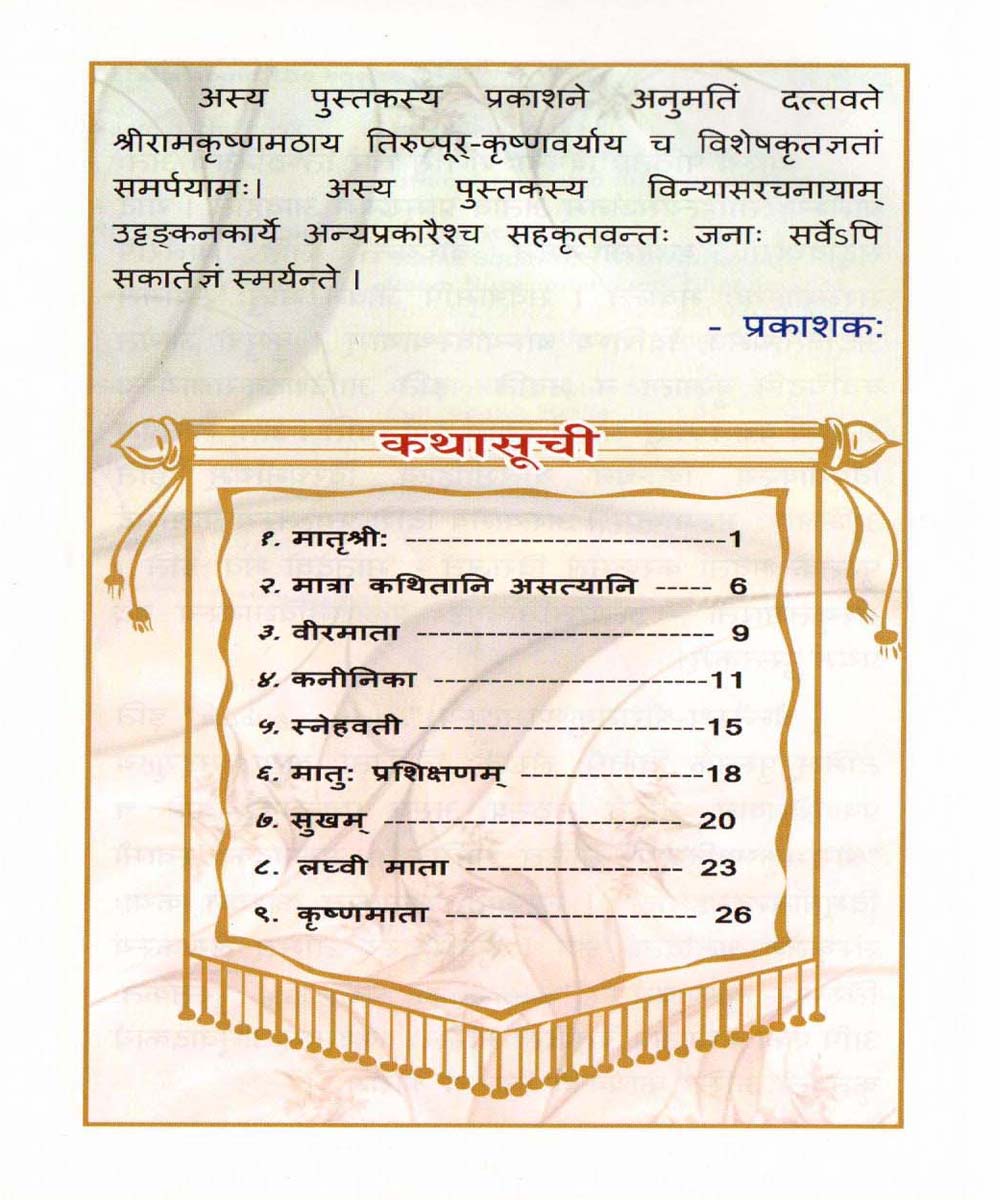 अस्य पुस्तकस्य प्रकाशने अनुमतिं दत्तवते
श्रीरामकृष्णमठाय तिरुप्पूर्-कृष्णवर्याय च विशेषकृतज्ञतां
समर्पयामः। अस्य पुस्तकस्य विन्यासरचनायाम्
उट्टङ्कनकार्ये अन्यप्रकारैश्च सहकृतवन्तः जनाः सर्वेऽपि
सकार्तज्ञं स्मर्यन्ते ।
- प्रकाशक:
कथासूची
१. मातृश्री: -----------------------------1
२. मात्रा कथितानि असत्यानि ----- 6
३. वीरमाता --------------------------- 9
४. कनीनिका -------------------------11
५. स्नेहवती --------------------------15
६. मातु: प्रशिक्षणम् -----------------18
७. सुखम् ---------------------------- 20
८. लघ्वी माता -------------------- 23
९. कृष्णमाता ----------------------- 26